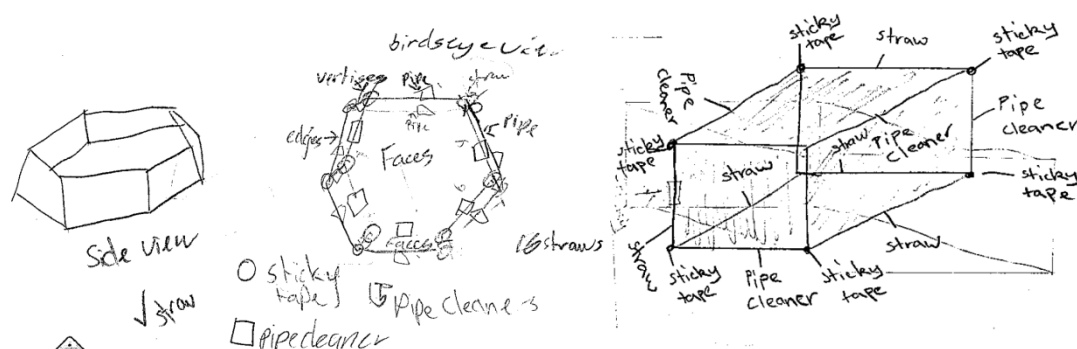 Side view
straw
birdseye view
vertises
pipe
straw
pipe
pipe
edges
Faces
Faces
16 straws
sticky
tape
pipe cleaners
pipecleaner
sticky
tape
straw
sticky
tape
Pipe
cleaner
Pipe
cleaner
sticky
tape
straw
Pipe
cleaner
straw
sticky
tape
straw
straw
sticky
tape
Pipe
cleaner
sticky
tape